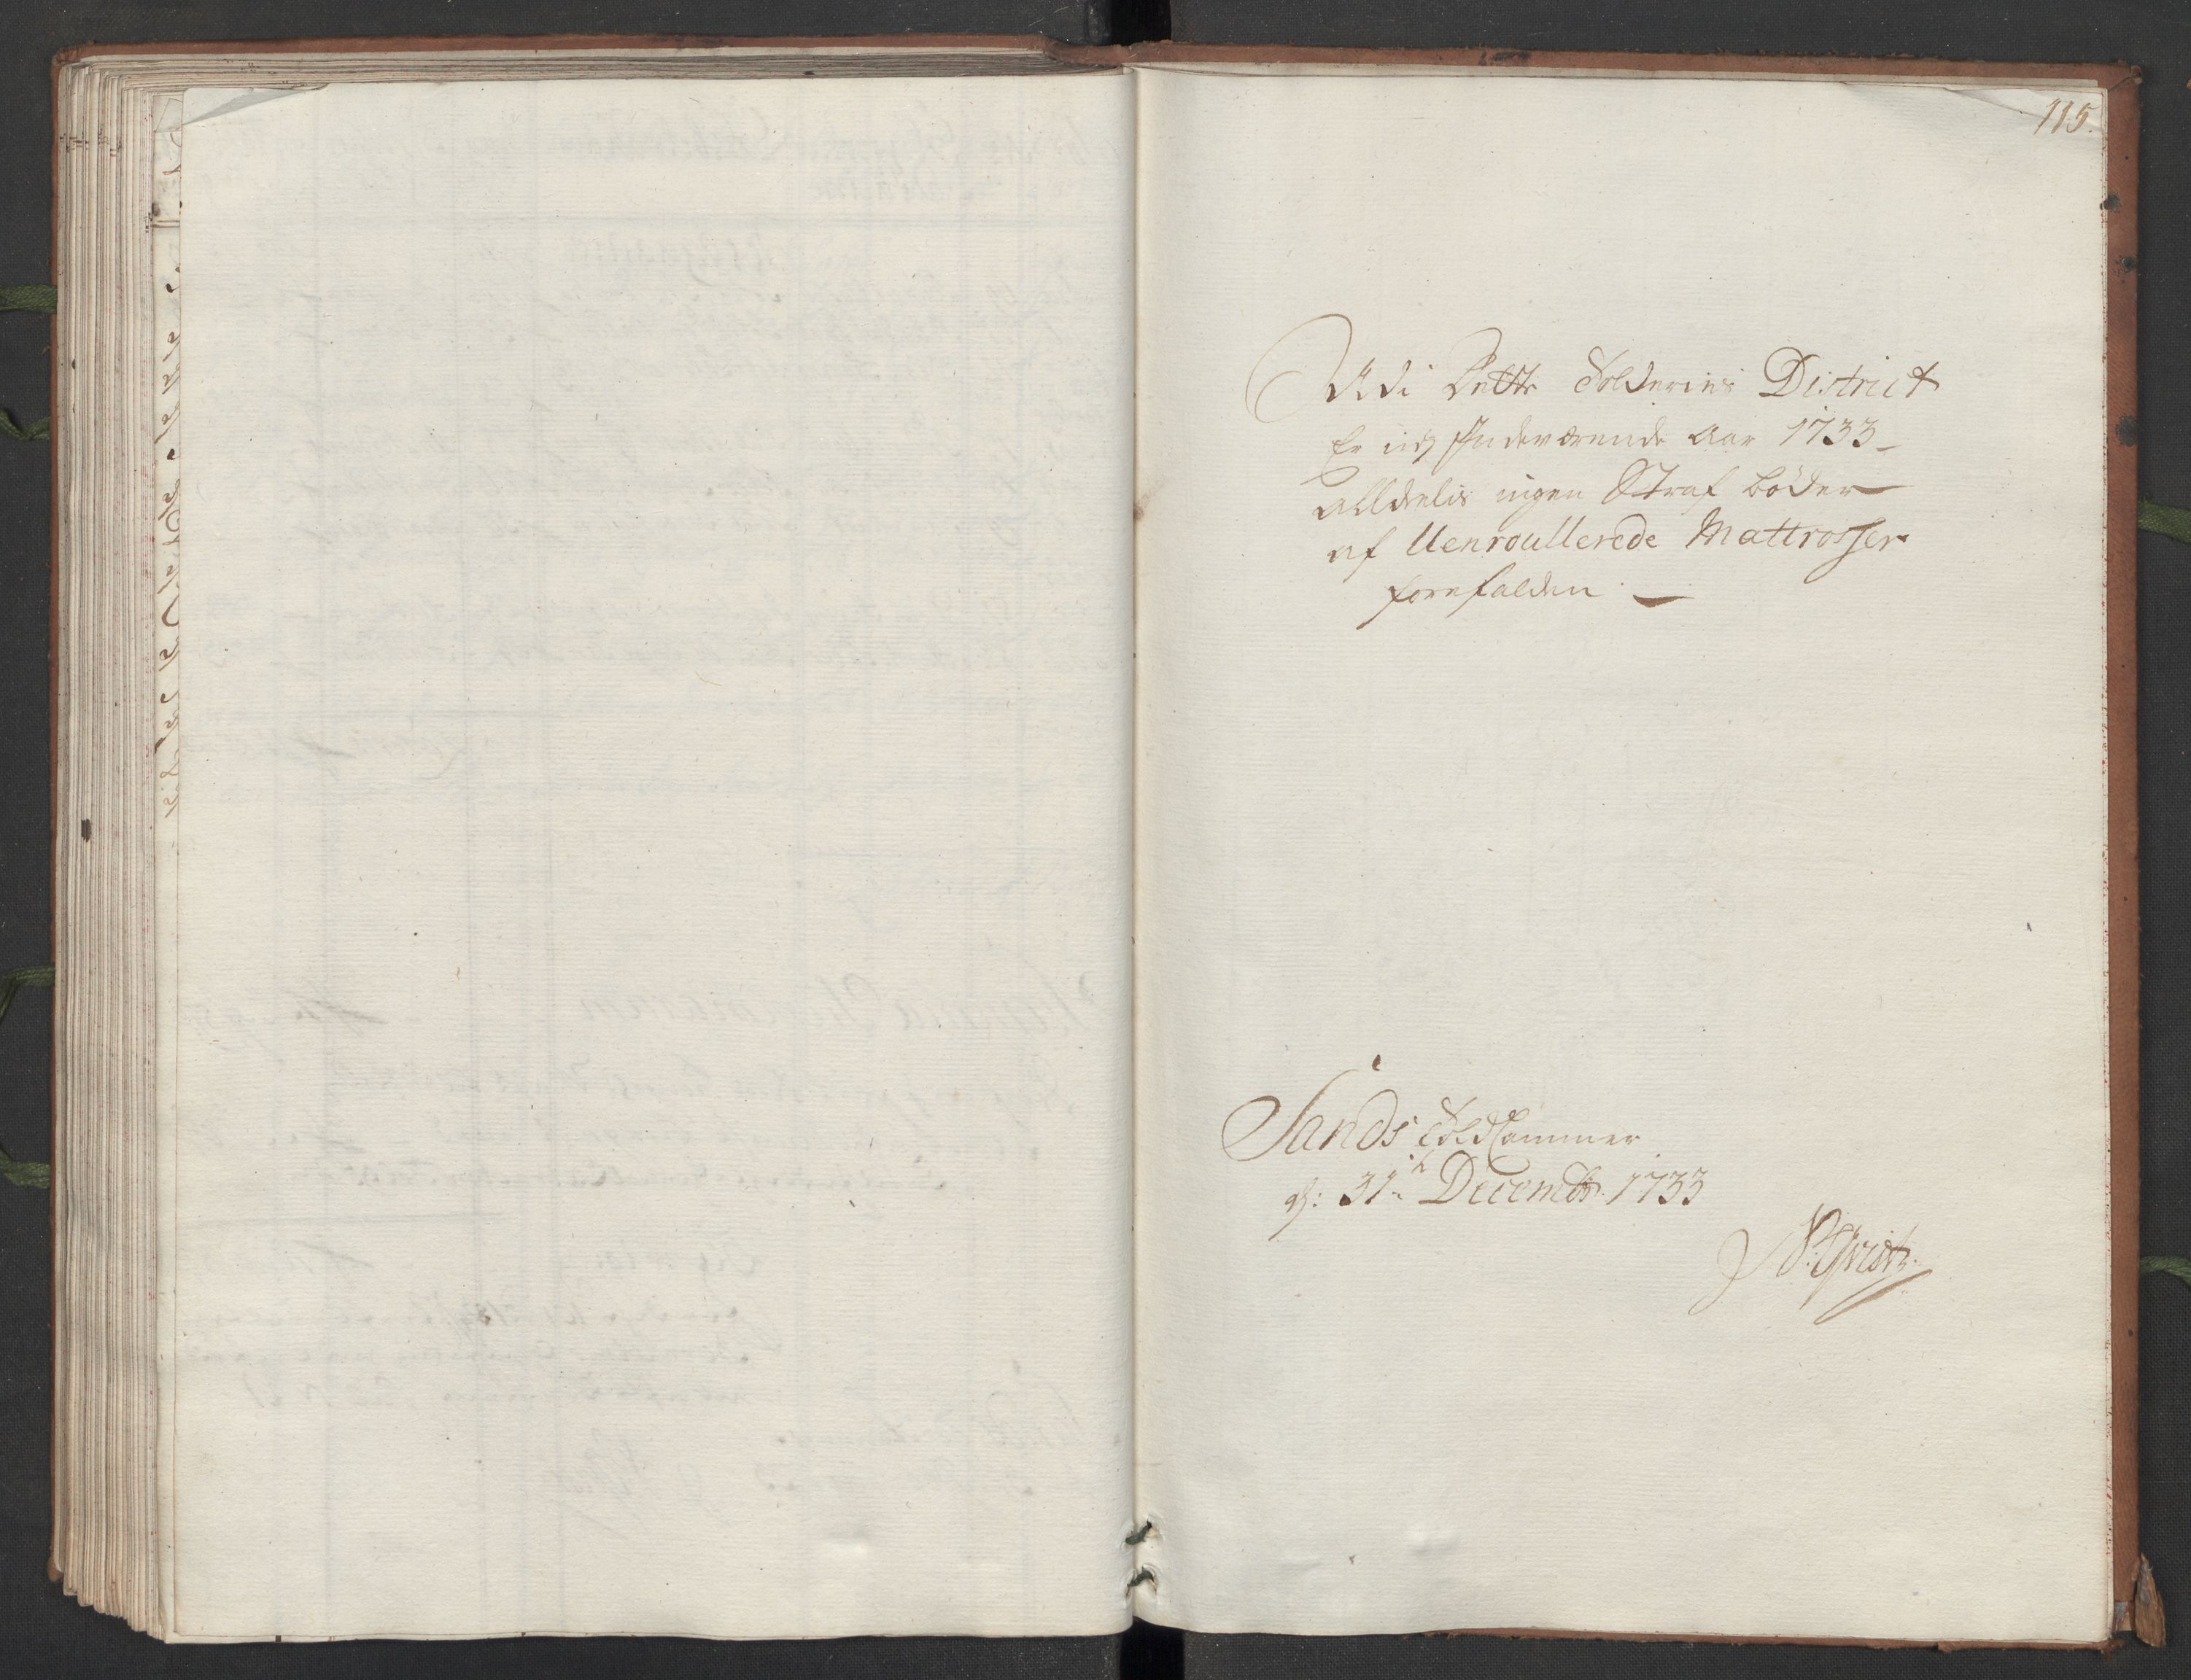 115.
Udi Dette Tolderies District
Er udj Indeværende Aar 1733
alldeelis ingen Straf bøder
af Uenroullerede Mattrosser
forefalden
Sands Told Cammer
d: 31. Decembr. 1733